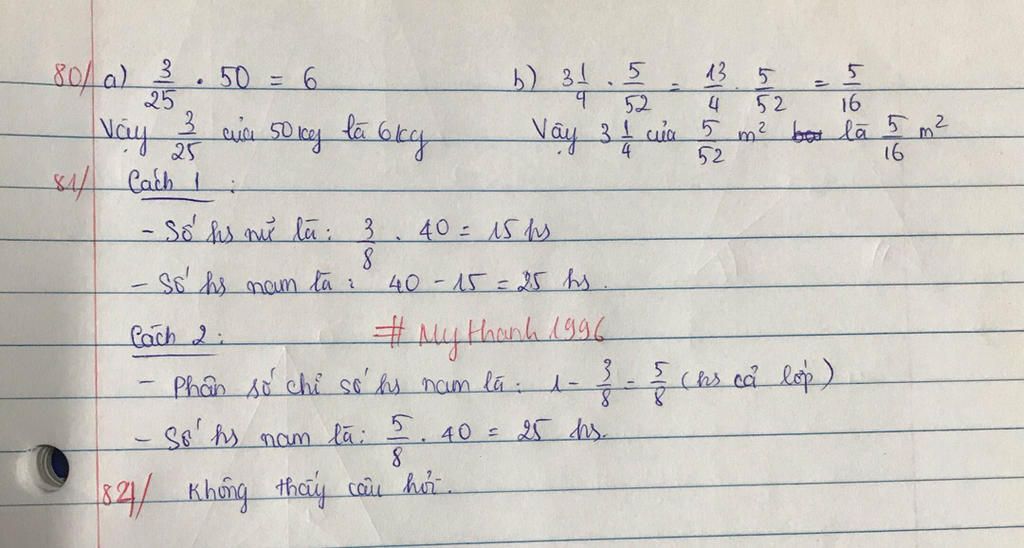 80/ a) 3/25 . 50 = 6 b) 3 1/4 . 5/52 = 13/4 . 5/52 = 5/16
Vậy 3/25 của 50kg là 6kg Vậy 3 1/4 của 5/52 m² là 5/16 m²
81/ Cách 1 :
- Số hs nữ là : 3/8 . 40 = 15 hs
- Số hs nam là : 40 - 15 = 25 hs.
Cách 2 : # Mythanh1996
- Phân số chỉ số hs nam là : 1 - 3/8 = 5/8 (hs cả lớp)
- Số hs nam là : 5/8 . 40 = 25 hs.
82/ Không thấy câu hỏi.